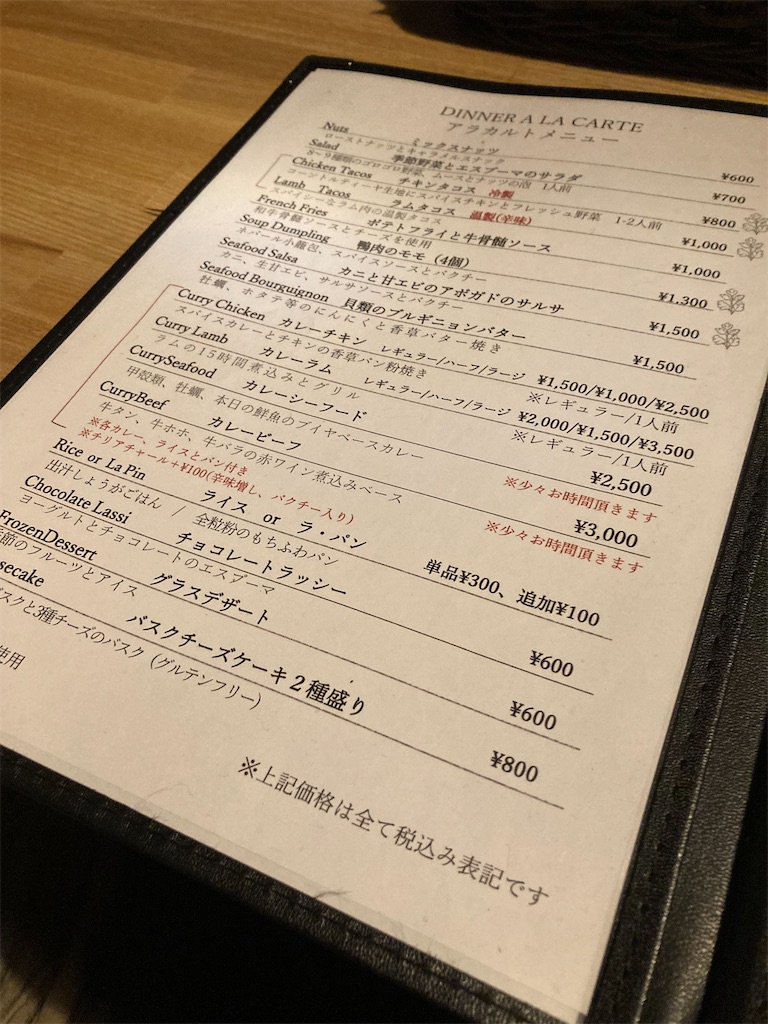 DINNER A LA CARTE
アラカルトメニュー
Nuts ミックスナッツ ¥600
ローストナッツとキャラメルスナック
Salad 季節野菜とエスプーマのサラダ ¥700
8〜9種類のゴロゴロ野菜、ムースとナッツの泡 1人前
Chicken Tacos チキンタコス 冷製 ¥800
コーントルティーヤ生地にスパイスチキンとフレッシュ野菜 1-2人前
Lamb Tacos ラムタコス 温製(辛味) ¥1,000
スパイシーなラム肉の温製タコス
French Fries ポテトフライと牛骨髄ソース ¥1,000
和牛骨髄ソースとチーズを使用
Soup Dumpling 鴨肉のモモ（4個） ¥1,300
ネパール小籠包、スパイスソースとパクチー
Seafood Salsa カニと甘エビのアボガドのサルサ ¥1,500
カニ、生甘エビ、サルサソースとパクチー
Seafood Bourguignon 貝類のブルギニョンバター ¥1,500
牡蠣、ホタテ等のにんにくと香草バター焼き
Curry Chicken カレーチキン レギュラー/ハーフ/ラージ ¥1,500/¥1,000/¥2,500
スパイスカレーとチキンの香草パン粉焼き ※レギュラー/1人前
Curry Lamb カレーラム レギュラー/ハーフ/ラージ ¥2,000/¥1,500/¥3,500
ラムの15時間煮込みとグリル ※レギュラー/1人前
CurrySeafood カレーシーフード ¥2,500
甲殻類、牡蠣、本日の鮮魚のブイヤベースカレー ※少々お時間頂きます
CurryBeef カレービーフ ¥3,000
牛タン、牛ホホ、牛バラの赤ワイン煮込みベース ※少々お時間頂きます
※各カレー、ライスとパン付き
※チリアチャール+¥100(辛味増し、パクチー入り)
Rice or La Pin ライス or ラ・パン 単品¥300、追加¥100
出汁しょうがごはん / 全粒粉のもちふわパン
Chocolate Lassi チョコレートラッシー ¥600
ヨーグルトとチョコレートのエスプーマ
FrozenDessert グラスデザート ¥600
節のフルーツとアイス
secake バスクチーズケーキ２種盛り ¥800
バスクと3種チーズのバスク（グルテンフリー）
使用
※上記価格は全て税込み表記です